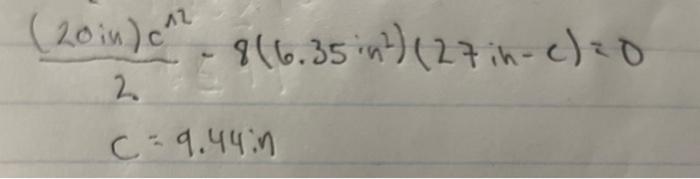 (20in)c^2
/2 - 8(6.35in²)(27in-c)=0
c=9.44in